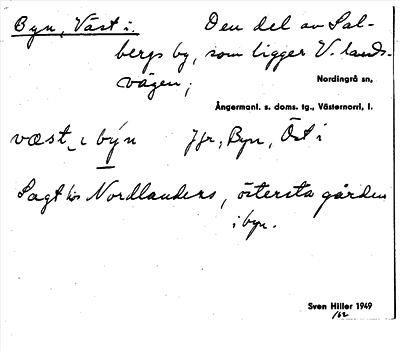 Byn, Väst i. Den del av Sal-
bergs by, som ligger V. lands-
vägen;
Nordingrå sn,
Ångermanl. s. doms. tg., Västernorrl. l.
væst_ ι býn Jfr, Byn, Öst i
Sagt hos Nordlanders, östersta gården
i byn.
Sven Hiller 1949
/62